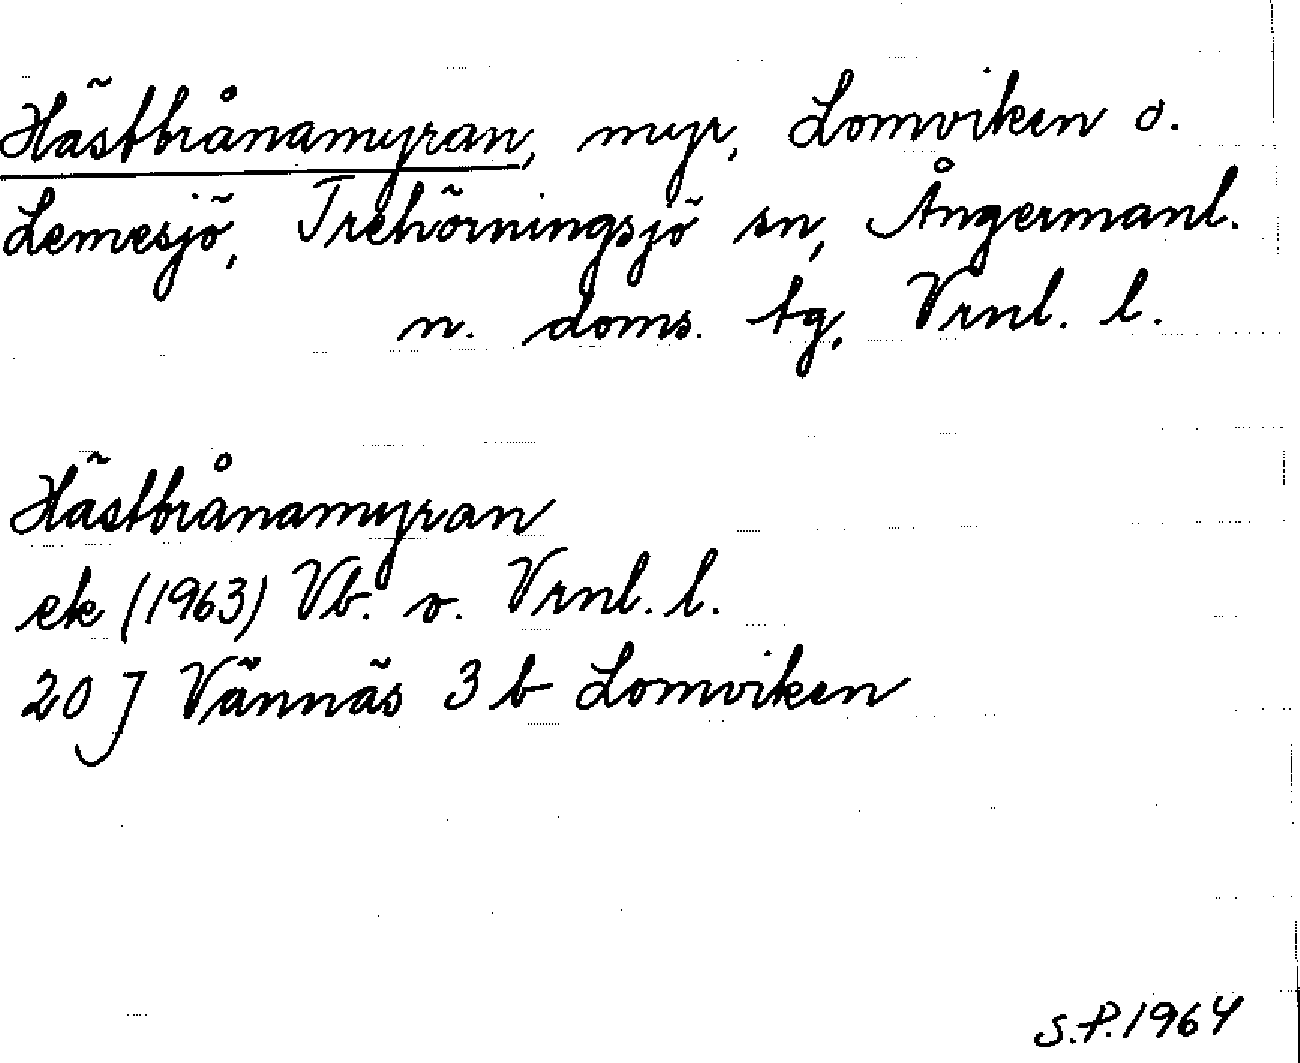 Hästbrånamyran, myr, Lomviken o.
Lemesjö, Trehörningsjö sn, Ångermanl.
n. doms. tg, Vrnl. l.
Hästbrånamyran
ek (1963) Vb. o. Vrnl. l.
20 J Vännäs 3 b Lomviken
S.P. 1964